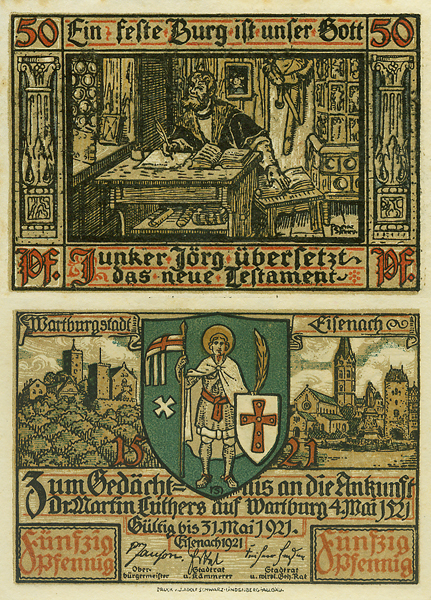 50 Ein feste Burg ist unser Gott 50
Pf. Junker Jörg übersetzt Pf.
das neue Testament
Wartburgstadt Eisenach
15 21
Zum Gedächtnis an die Ankunft
Dr Martin Luthers auf Wartburg 4. Mai 1521
Gültig bis 31. Mai 1921.
Eisenach 1921
Fünfzig Pfennig
Fünfzig Pfennig
Ober-
bürgermeister
Stadtrat
u. Kämmerer
Stadtrat
u. wirkl. Geh. Rat
DRUCK v. J. ADOLF SCHWARZ-LINDENBERG-ALLGÄU.